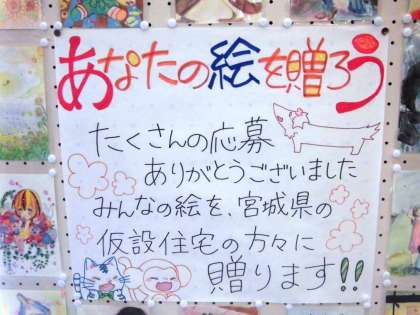 あなたの絵を贈ろう
たくさんの応募
ありがとうございました
みんなの絵を、宮城県の
仮設住宅の方々に
贈ります!!